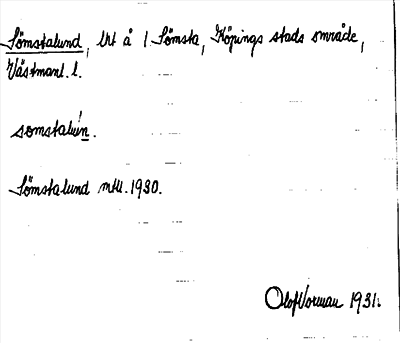 Sömstalund, lht å 1 Sömsta, Köpings stads område,
Västmanl. l.
somstalun.
Sömstalund mtl. 1930.
Olof Vorman 1931.